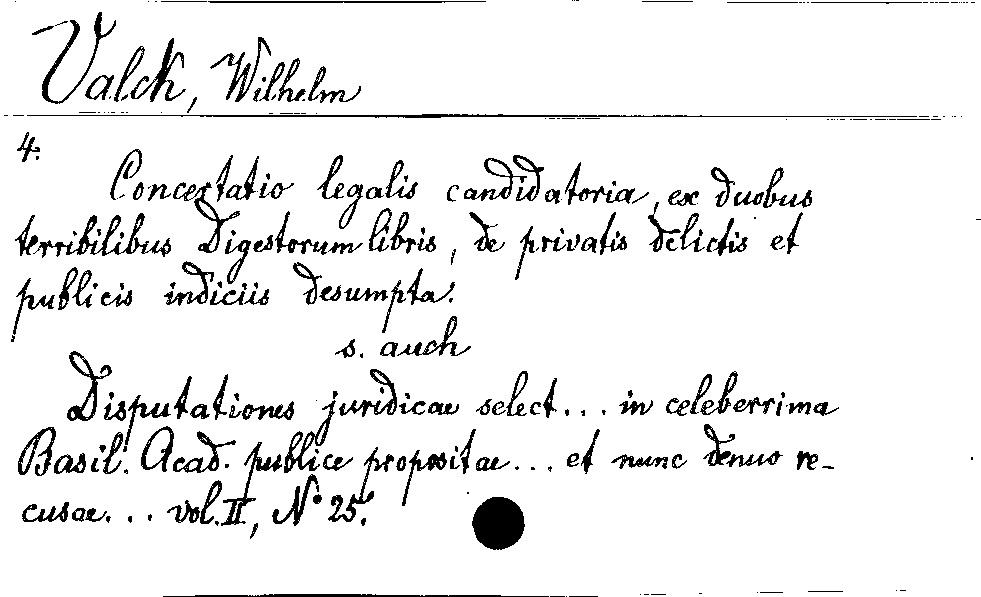 Valck, Wilhelm
4.
Concertatio legalis candidatoria, ex duobus
terribilibus Digestorum libris, de privatis delictis et
publicis indiciis desumpta.
s. auch
Disputationes juridicae select... in celeberrima
Basil. Acad. publice propositae... et nunc denuo re-
cusae... vol. II, No 25.